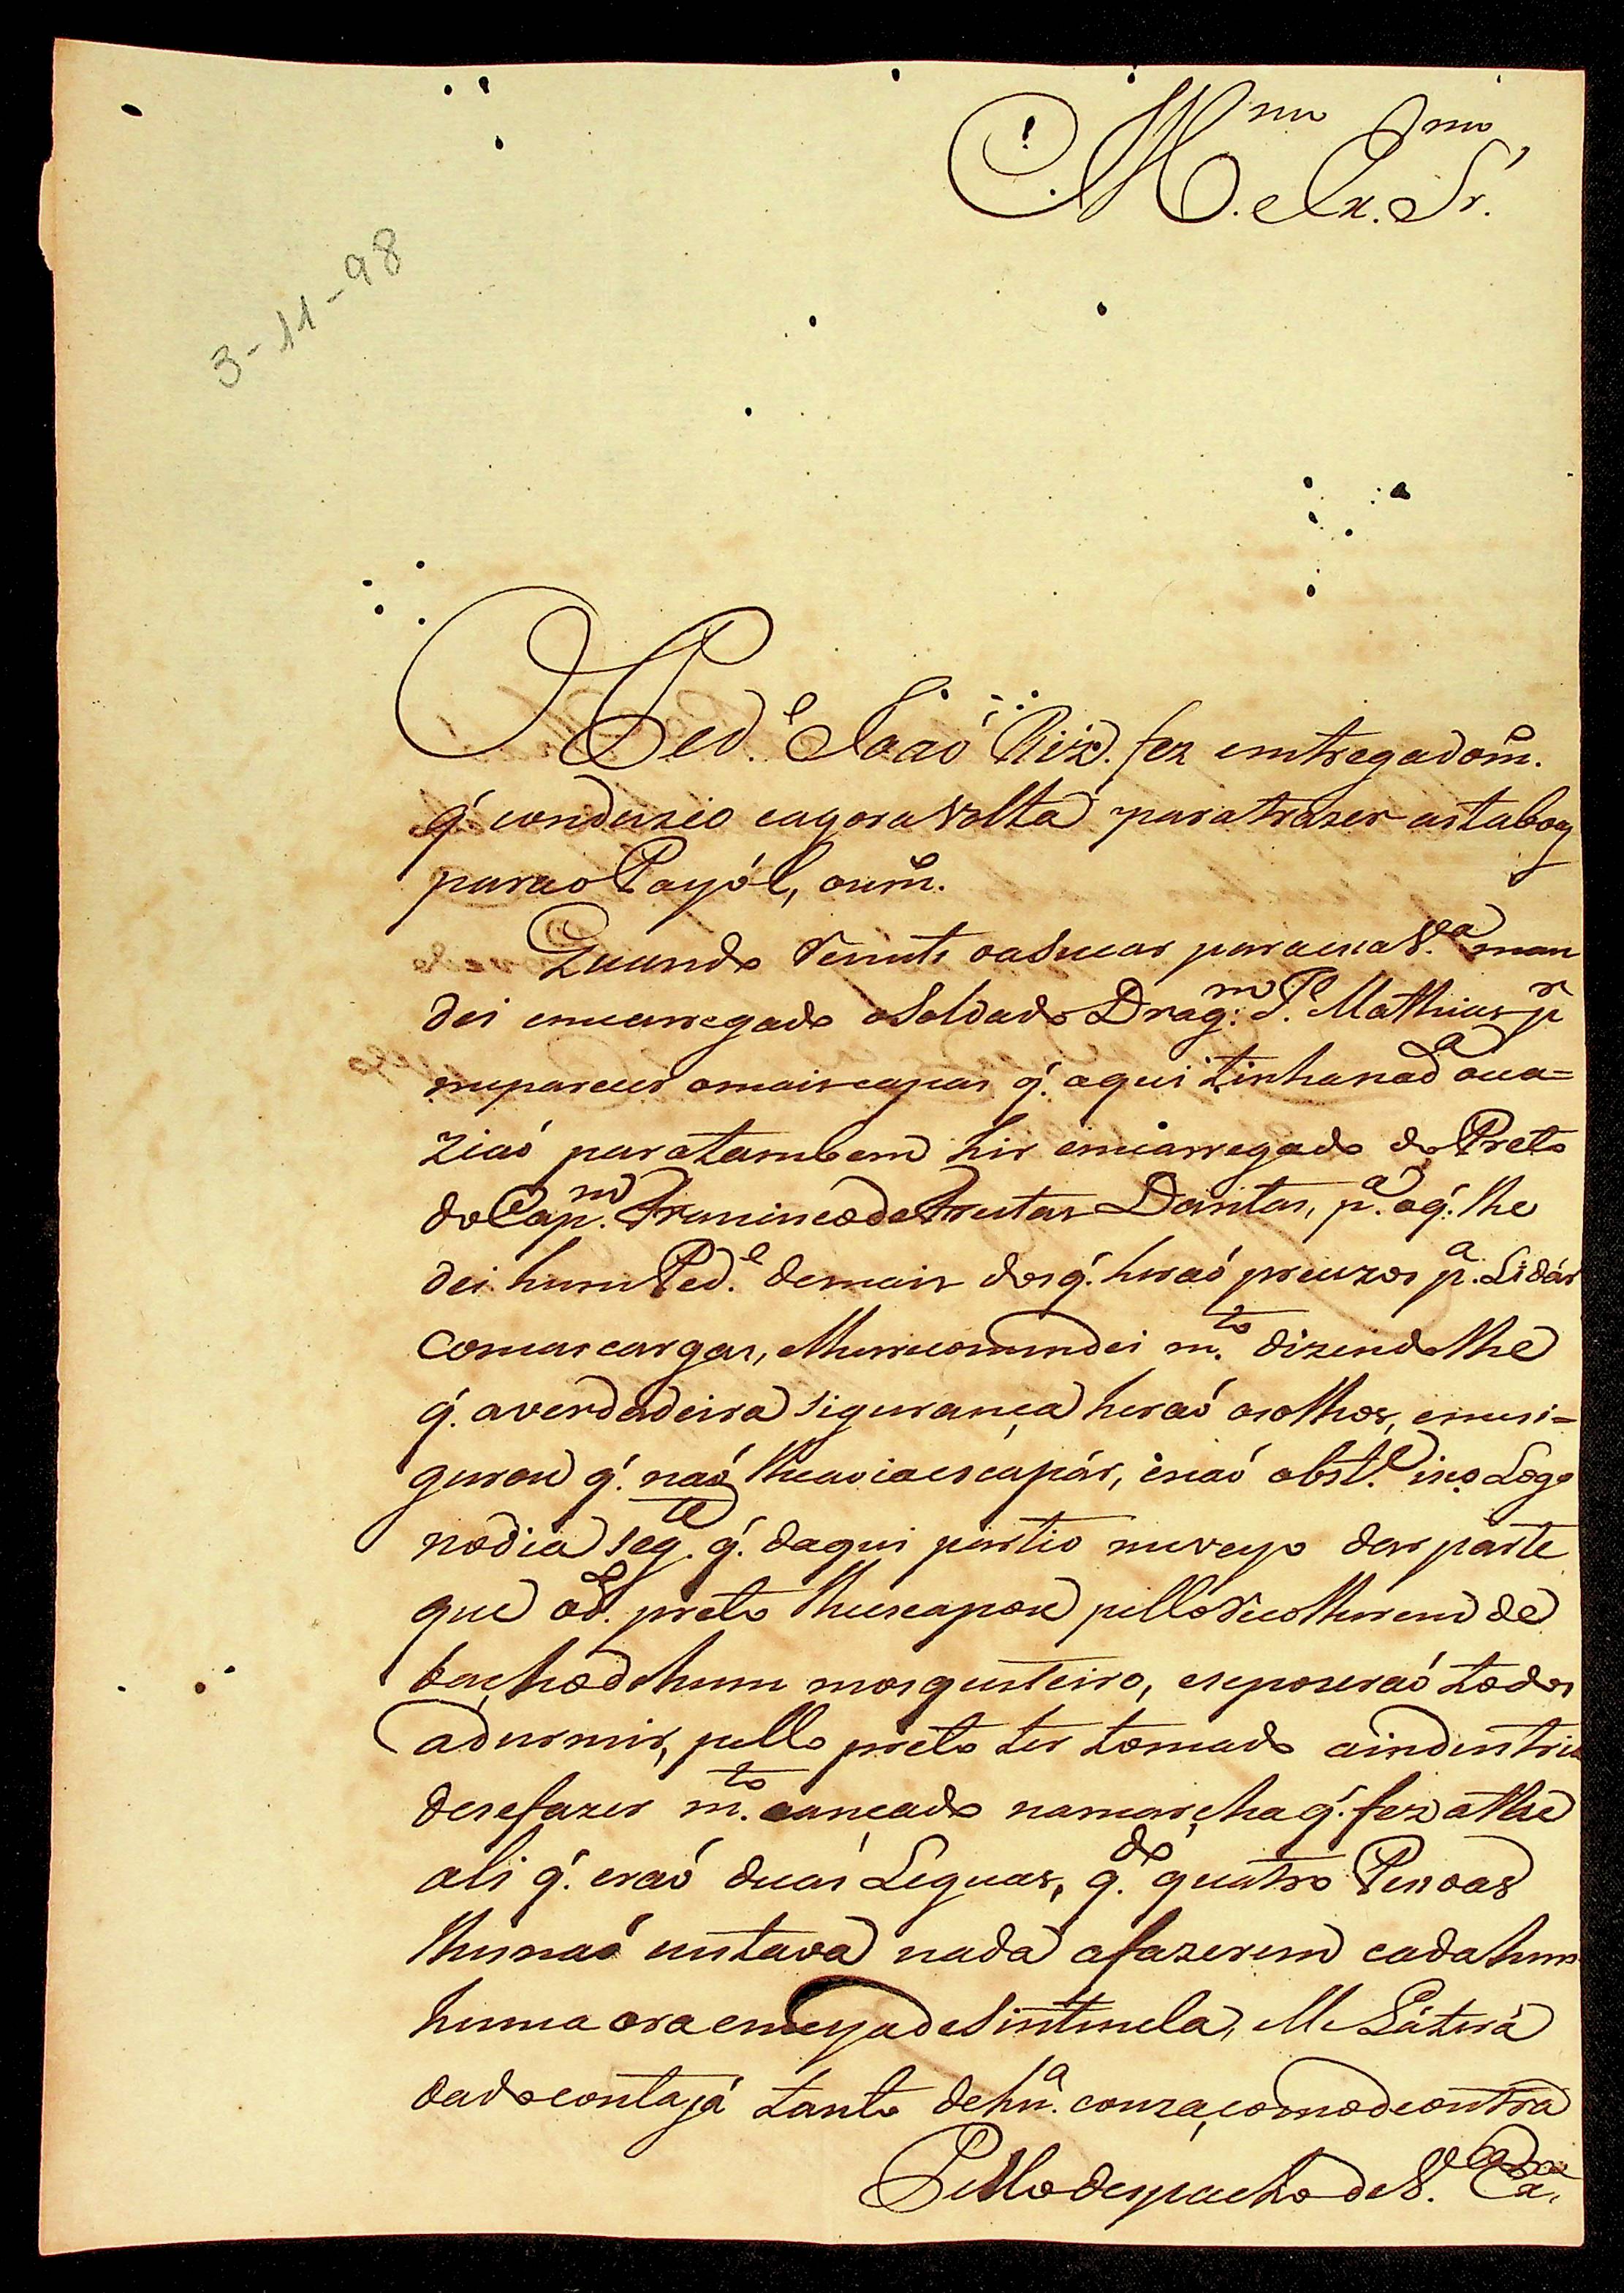 Ill.mo e Ex.mo Sr.
3-11-98
O Ped.e Joaó Roiz. fez emtrega do m.
q́ conduzio e agora volta para trazer as taboas
para o Payól, o u m.
Quando remeti o asucar para essa V.a man
dei emcarregado o Soldado Drag.m P. Mathias p.r
me pareser o mais capas q́. aqui tinha na d.a oca=
ziaó para tambem hir emcarregado do Preto
do Cap.m Francisco de Freitas Dantas, p.a o q́. lhe
dei hum Ped.e de mais dos q́. heraó precizos p.a Lidár
com as cargas, e lhe recomendei m.to dizendo lhe
q́. a verdadeira sigurança heraó os olhos, e me si=
gurou q́. naó lhe avia escapár, e naó obst.e iso Logo
no dia seg.te q́. daqui partio me veyo dar parte
que o d. preto lhe escapou pello recolherem de
bacho de hum mosquiteiro, e se pozeraó todos
a durmir, pello preto ter tomado a industria
de se fazer m.to cançado na marcha q́. fez athe
ali q́. eraó duas Leguas, q.do quatro Pessoas
lhe naó custava nada a fazerem cada hum
huma ora e meya de Sintinela, elle Lá terá
dado conta já tanto de hũa couza, como de outra
Pello despacho de V. Ex.a